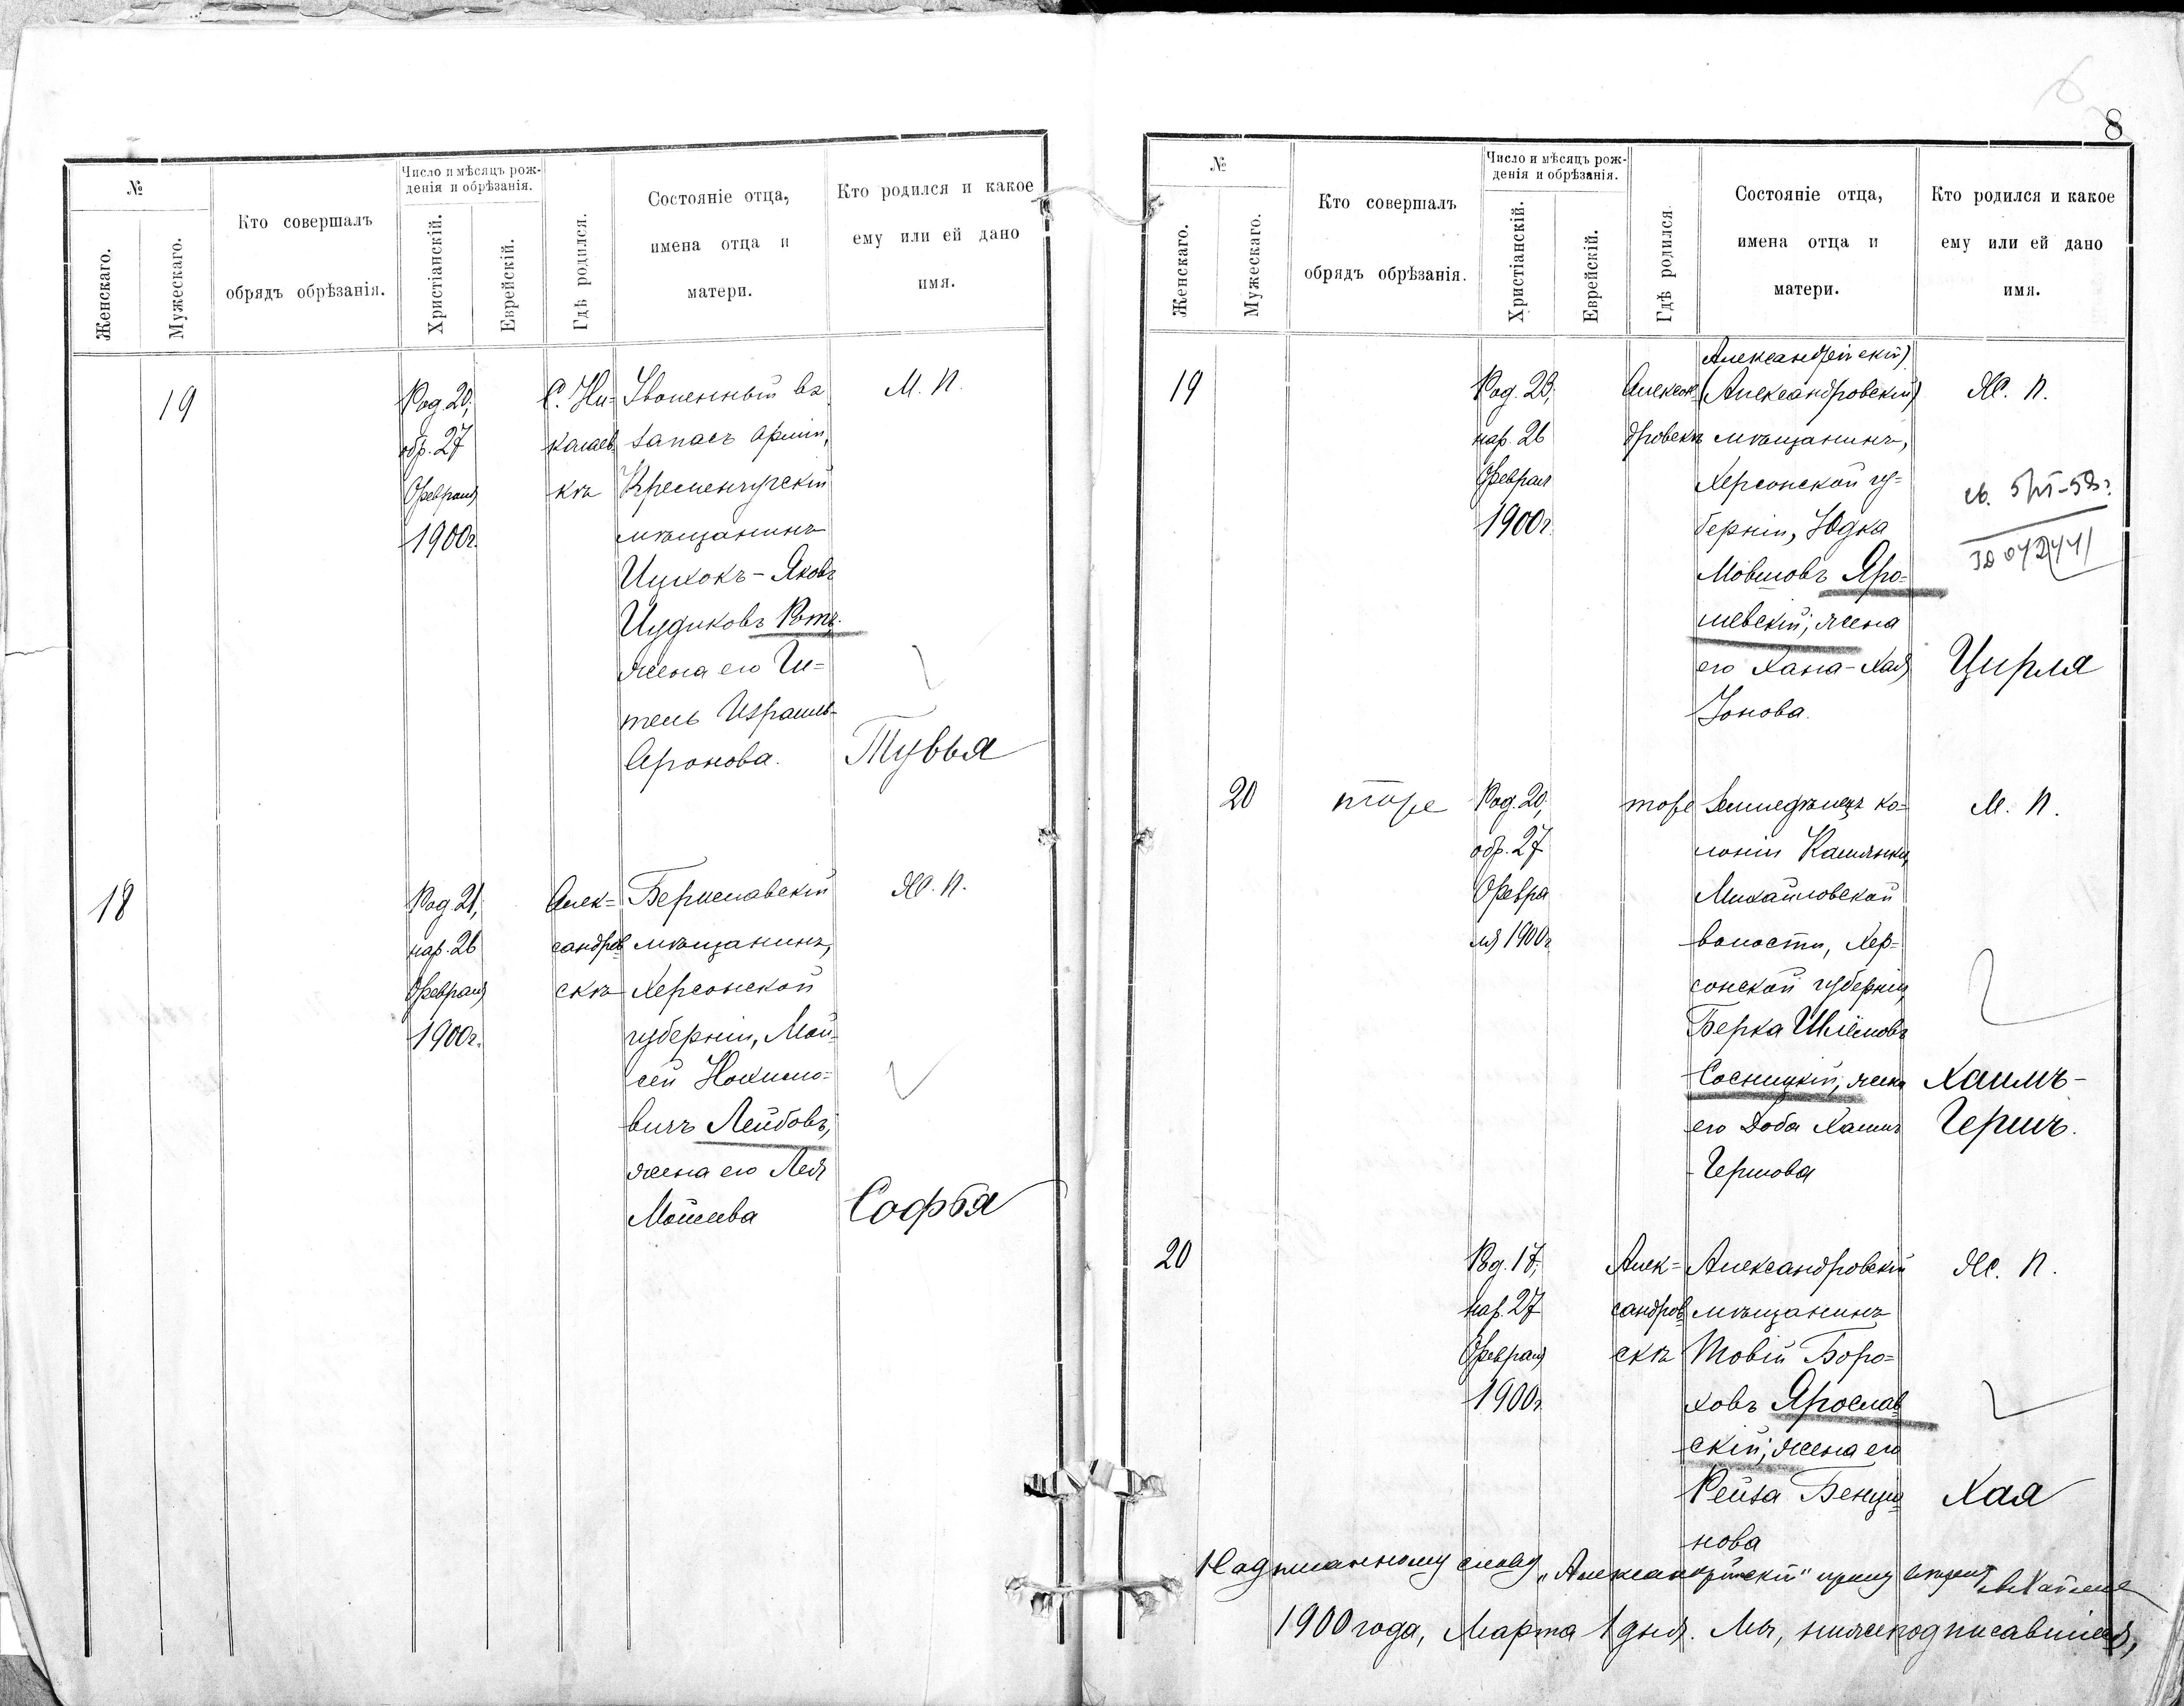 №
Женскаго.
Мужескаго.
Кто совершалъ
обрядъ обрѣзанія.
Число и мѣсяцъ рож-
денія и обрѣзанія.
Христіанскій.
Еврейскій.
Гдѣ родился.
Состояніе отца,
имена отца и
матери.
Кто родился и какое
ему или ей дано
имя.
19
Род. 20,
обр. 27
Февраля
1900г.
С. Ни-
колаев-
кѣ
Уволенный въ
запасъ арміи,
Кременчугскій
мѣщанинъ
Ицхокъ-Яковъ
Иудиковъ Ротъ.
жена его Ги-
тель Израиль-
Аронова.
М. П.
Тувья
18
Род. 21,
нар. 26
Февраля
1900г.
Алек=
сандров
скѣ
Бериславскій
мѣщанинъ,
Херсонской
губерніи, Мой-
сей Нохимо=
вичъ Лейбовъ,
жена его Лея
Мошева
Ж. П.
Софья
8
№
Женскаго.
Мужескаго.
Кто совершалъ
обрядъ обрѣзанія.
Число и мѣсяцъ рож-
денія и обрѣзанія.
Христіанскій.
Еврейскій.
Гдѣ родился.
Состояніе отца,
имена отца и
матери.
Кто родился и какое
ему или ей дано
имя.
19
Род. 23,
нар. 26
Февраля
1900г.
Алексан-
дровскѣ
Александрійскій)
(Александровскій)
мѣщанинъ,
Херсонской гу=
берніи, Юдка
Мовшовъ Яро=
шевскій; жена
его Хана-Хая
Іонова.
Ж. П.
Цирля
20
тоже
Род. 20,
обр. 27
Февра
ля 1900г
тоже
Земледѣлецъ ко=
лоніи Камянки,
Михайловской
волости, Хер=
сонской губерніи
Берка Шлёмовъ
Сосницкій, жена
его Доба Хаимъ
Гершова
М. П.
Хаимъ-
Гершъ.
20
Род. 17,
нар. 27
Февраля
1900г.
Алек=
сандров
скѣ
Александровскій
мѣщанинъ
Товій Боро=
ховъ Ярослав
скій; жена его
Рейза Бенціо
нова
Ж. П.
Хая
Надписанному слову "Александрійскій"
1900 года, Марта 1 дня. Мы, нижеподписавшіеся,